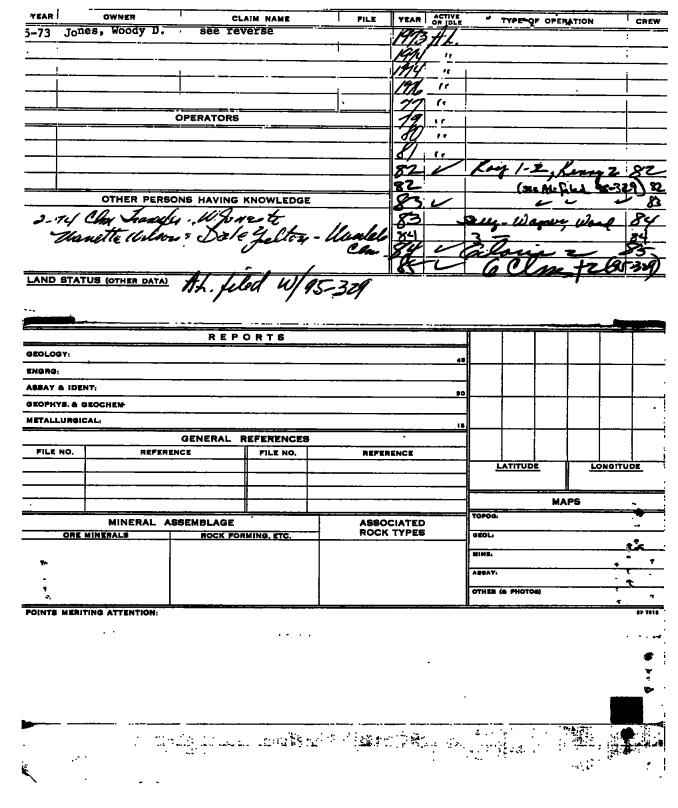 YEAR OWNER CLAIM NAME FILE YEAR ACTIVE OR IDLE TYPE OF OPERATION CREW
5-73 Jones, Woody D. see reverse 1973 A.L.
1974 "
1974 "
1976 "
77 "
OPERATORS 79 "
80 "
81 "
82 ✓ Roy 1-2, Kenny 2 82
82 (see AL filed 95-329) 82
OTHER PERSONS HAVING KNOWLEDGE 83 ✓ ✓ ✓ ✓ 83
2-74 Clm Transfer - W Jones to 83 Wagner, Wood 84
Nanette Wilson & Dale Yelton - 84 3 84
Clm 84 ✓ Gloria 2 85
85 ✓ 6 Clms + 2 (95-329)
LAND STATUS (OTHER DATA) A.L. filed W/95-329
REPORTS
GEOLOGY: 45
ENGRG:
ASSAY & IDENT: 30
GEOPHYS. & GEOCHEM
METALLURGICAL: 15
GENERAL REFERENCES
FILE NO. REFERENCE FILE NO. REFERENCE
LATITUDE LONGITUDE
MAPS
MINERAL ASSEMBLAGE ASSOCIATED ROCK TYPES
ORE MINERALS ROCK FORMING, ETC.
TOPOG:
GEOL:
MINE:
ASSAY:
OTHER (& PHOTOS)
POINTS MERITING ATTENTION: